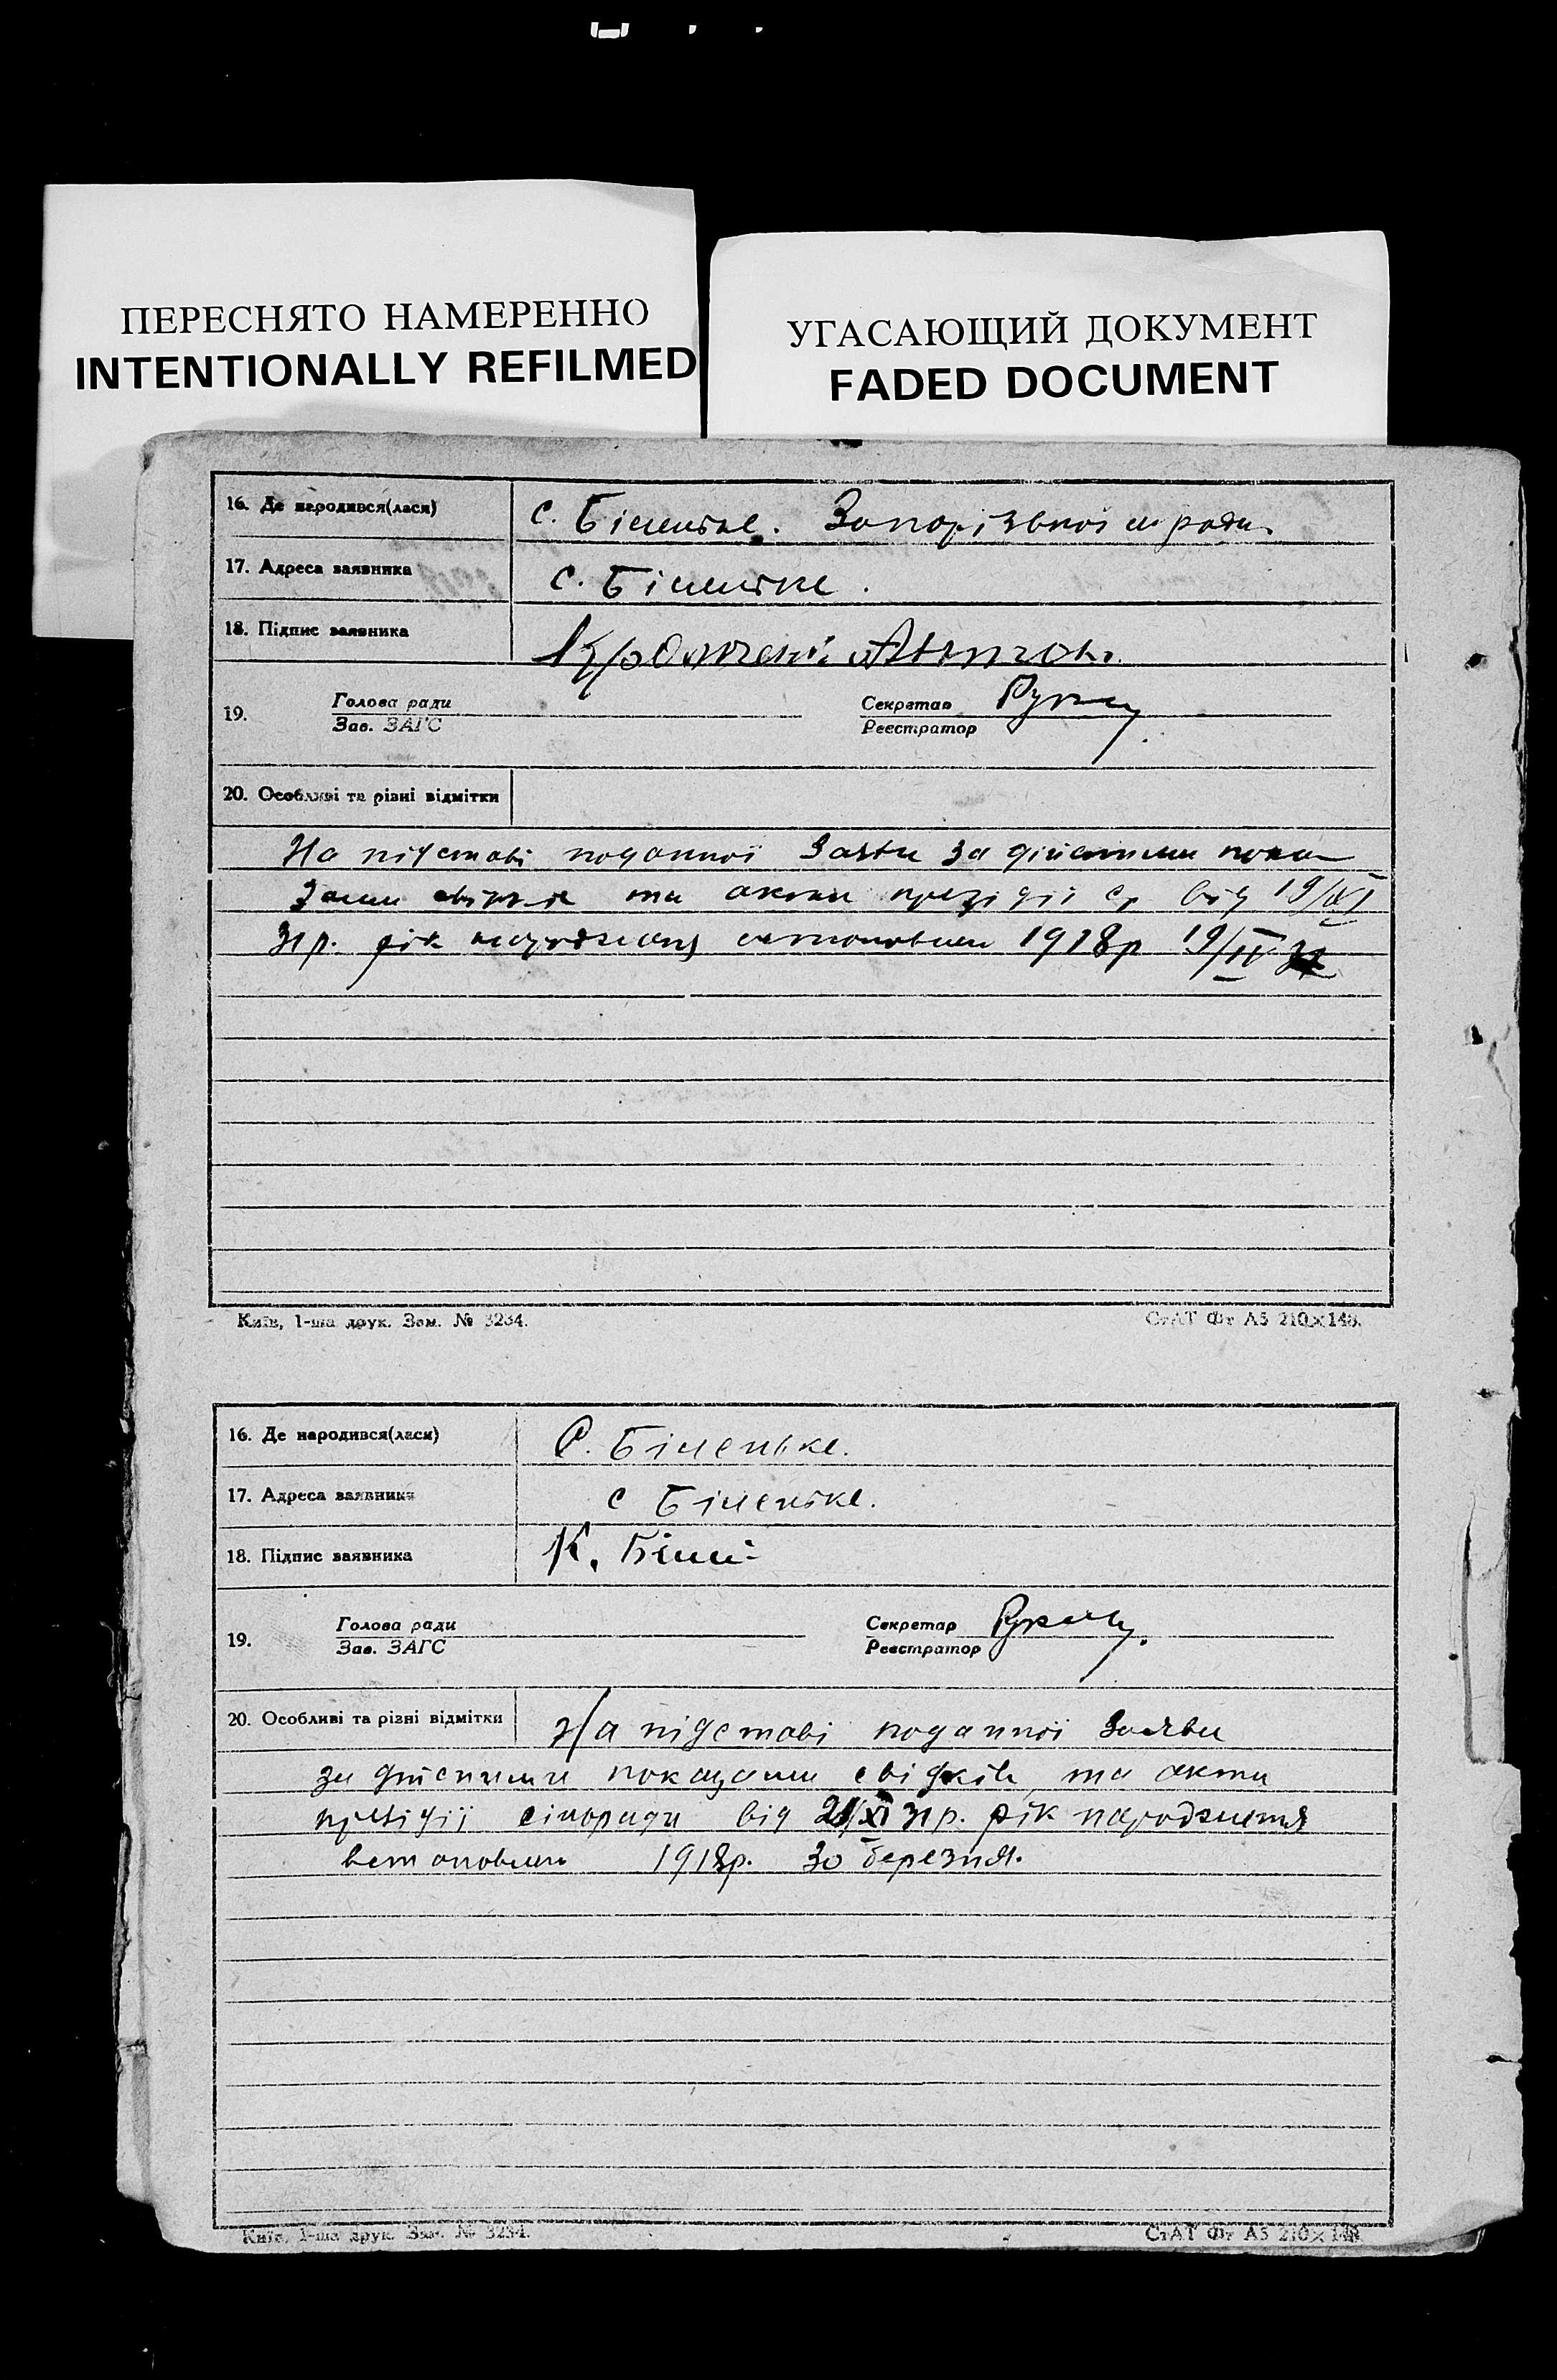 ПЕРЕСНЯТО НАМЕРЕННО
INTENTIONALLY REFILMED
УГАСАЮЩИЙ ДОКУМЕНТ
FADED DOCUMENT
16. Де народився(лася) с. Біленьке. Запорізької
17. Адреса заявника с. Біленьке.
18. Підпис заявника
19. Голова ради Секретар
Зав. ЗАГС Реєстратор
20. Особливі та різні відмітки
На підставі поданної заяви за дійсними пока
зами свідків та акта президії ср від 19/XI
31р. рік народження встановлен 1918р 19/IV
Київ, 1-ша друк. Зам. № 3234. СтАТ Фт А5 210×148.
16. Де народився(лася) С. Біленьке.
17. Адреса заявника с Біленьке.
18. Підпис заявника К.
19. Голова ради Секретар
Зав. ЗАГС Реєстратор
20. Особливі та різні відмітки На підставі поданної заяви
за дійсними показами свідків та акта
президії сільради від 31р. рік народження
встановлен 1918р. 30 березня.
Київ, 1-ша друк. Зам. № 3234. СтАТ Фт А5 210×148.